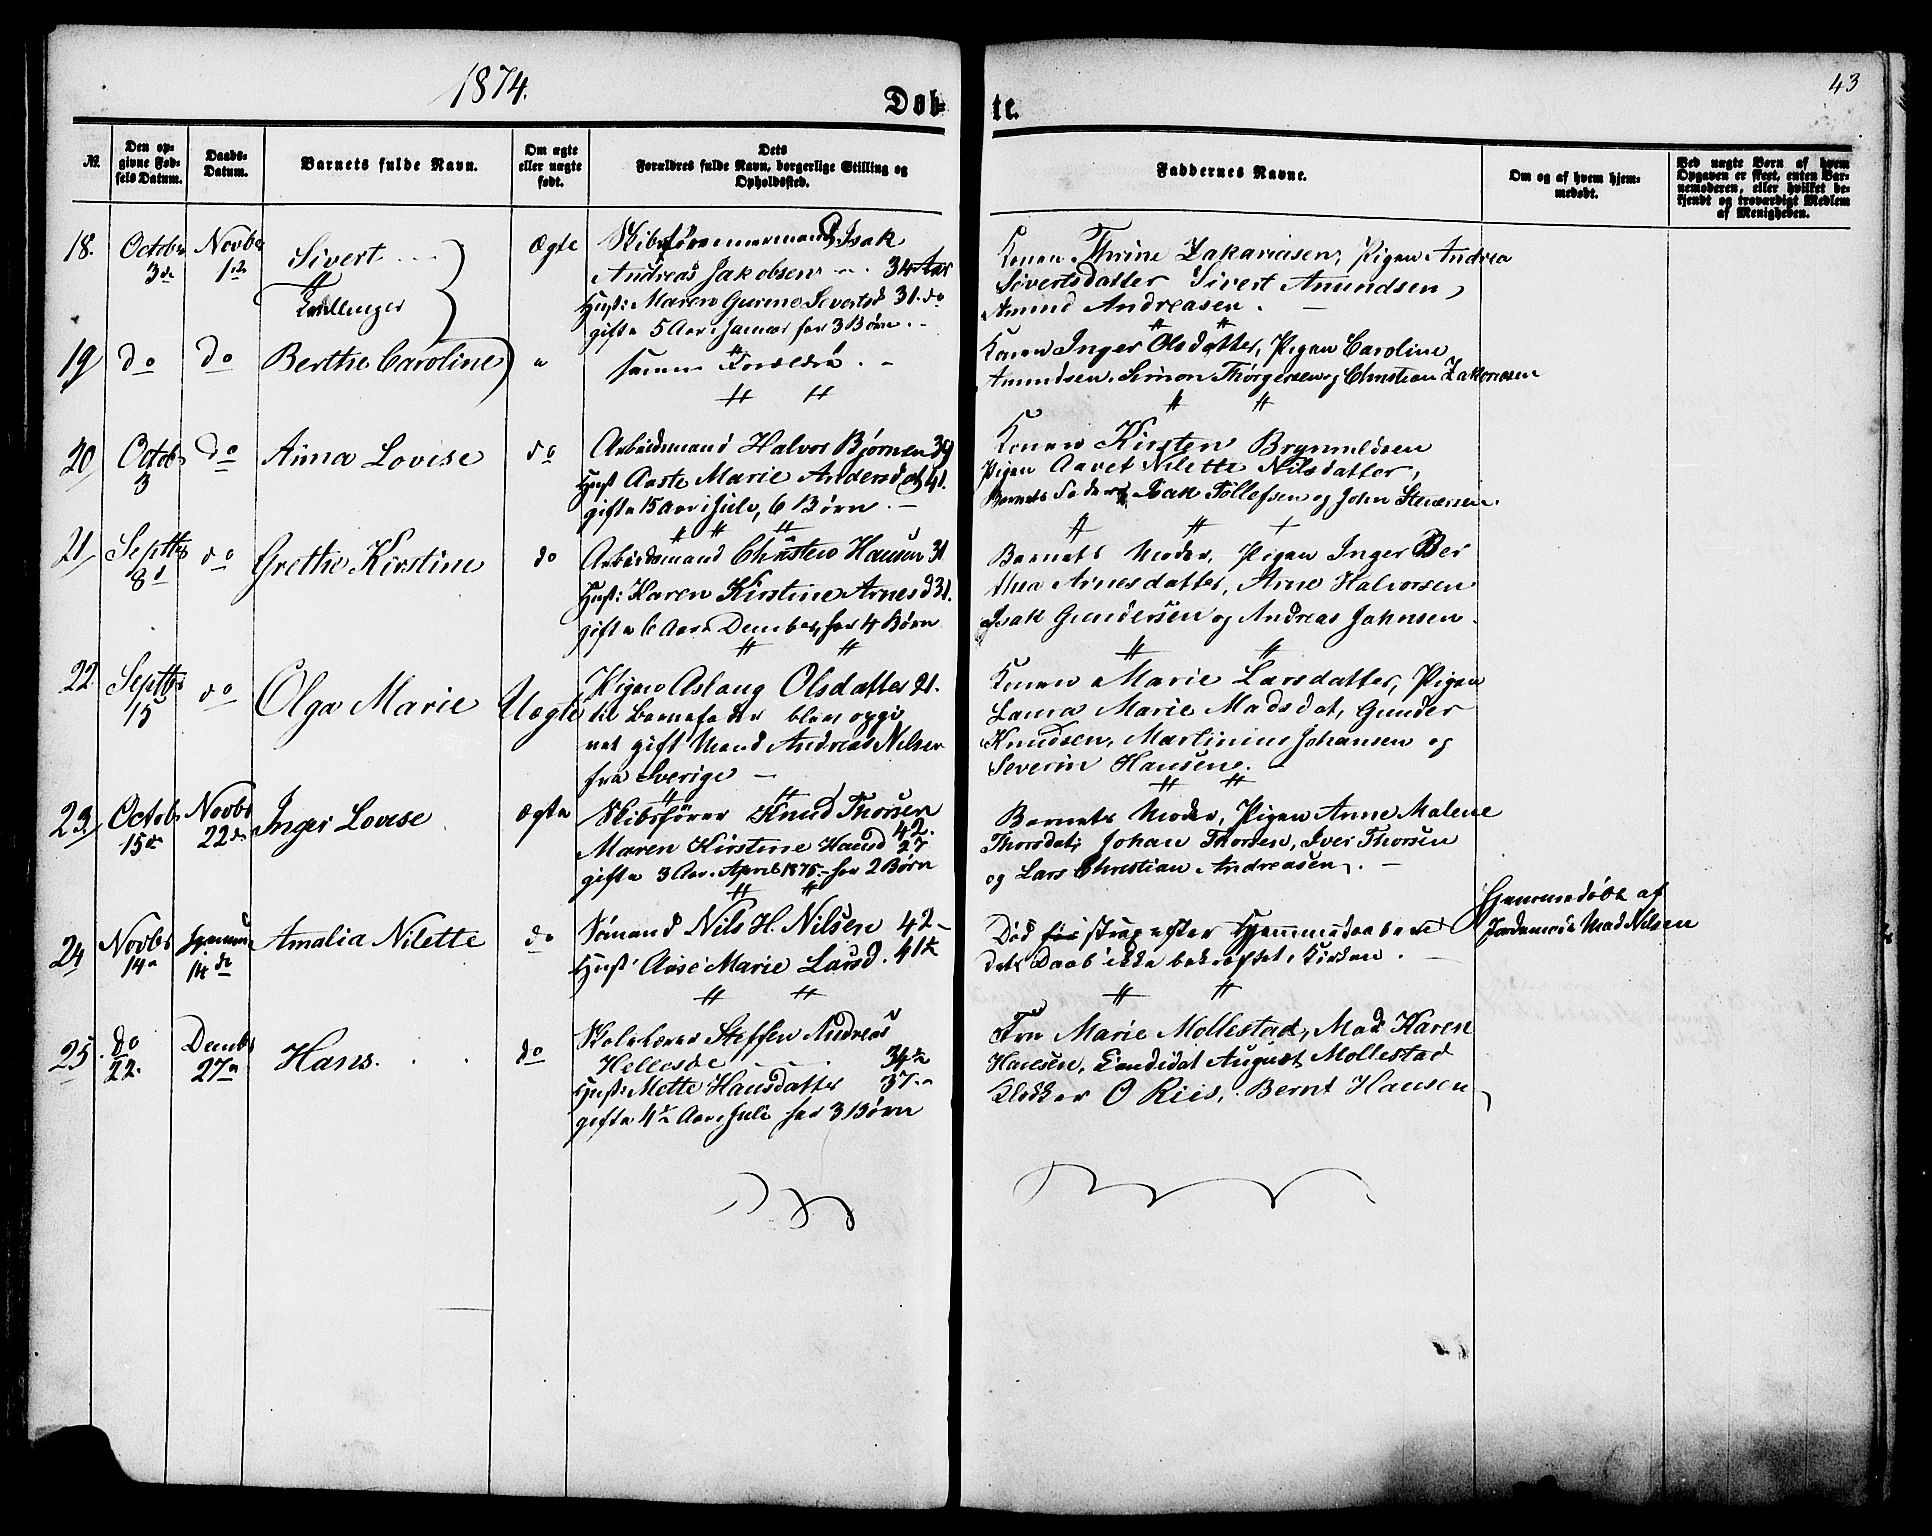 1874.
Døb-
te.
43
№.
Den op-
givne Fød-
sels Datum.
Daabs-
Datum.
Barnets fulde Navn.
Om ægte
eller uægte
født.
Dets
Forældres fulde Navn, borgerlige Stilling og
Opholdssted.
Faddernes Navne.
Om og af hvem hjem-
medøbt.
Ved uægte Børn af hvem
Opgaven er skeet, enten Bar-
nemoderen, eller hvilket be-
kjendt og troværdigt Medlem
af Menigheden.
18.
Octobr
3de
Novbr
1ste
Sivert
Tvillinger
Ægte
Isak
Andreas Jakobsen 34 Aar
Hust: Maren Sivertsd 31. do
gifte 5 Aar i Januar har 3 Børn.
Konen Thrine Zakariasen, Pigen Andrea
Sivertsdatter Sivert Amundsen,
Amund Andreasen.
19
do
do
Berthe Caroline
"
samme Forældre.
Konen Inger Olsdatter, Pigen Caroline
Amundsen, Simon Thorgersen og Christian Zakariasen
20
Octobr
3
do
Anna Lovise
do
Arbeidsmand Halvor Bjørnsen 39
Hust Aaste Marie Andersdat 41.
gifte 15 Aar i Juli, 6 Børn.
Konen Kirsten Brynnildsen
Pigen Aaret Nilette Nilsdatter,
Barnets Fader, Isak Tollefsen og John Stenersen
21
Septbr
8d
do
Grethe Kirstine
do
Arbeidsmand Christen Hansen 31
Hust: Karen Kirstine Arnesd 31.
gifte 6 Aar i Decmber, har 4 Børn
Barnets Moder, Pigen Inger Ber
thea Arnesdatter, Arne Halvorsen
Isak Gundersen og Andreas Jahnsen.
22
Septbr
15
do
Olga Marie
Uægte
Pigen Aslaug Olsdatter 21.
til Barnefader blev opgi
vet gift Mand Andreas Nilsen
fra Sverige
Konen Marie Larsdatter, Pigen
Laura Marie Madsdat, Gunder
Knudsen, Martinius Johansen og
Severin Hansen.
23
Octobr
15de
Novbr
22de
Inger Lovise
Ægte
Skibsfører Knud Thorsen
42.
Maren Kirstine Hansd 27
gifte 3 Aar i April 1875 har 2 Børn
Barnets Moder, Pigen Anne Malene
Thorsdat, Johan Thorsen, Iver Thorsen
og Lars Christian Andreasen.
24
Novbr
14
14de
Amalia Nilette
do
Sømand Nils H. Nilsen 42
Hust Aase Marie Larsd. 41½
Død strax efter Hjemmedaaben
dets Daab ikke bekræftet i Kirken.
Hjemmedøbt af
Jordemoder Mad Nilsen
25.
do
22.
Decmbr
27
Hans.
do
Skolelærer Steffen Andreas
Hellesdo 34½
Hust: Mette Hansdatter 37.
gifte 4½ Aar i Juli har 3 Børn
Fru Marie Mollestad, Mad Karen
Hansen, Candidat August Mollestad
Klokker O Riis, Bernt Hansen